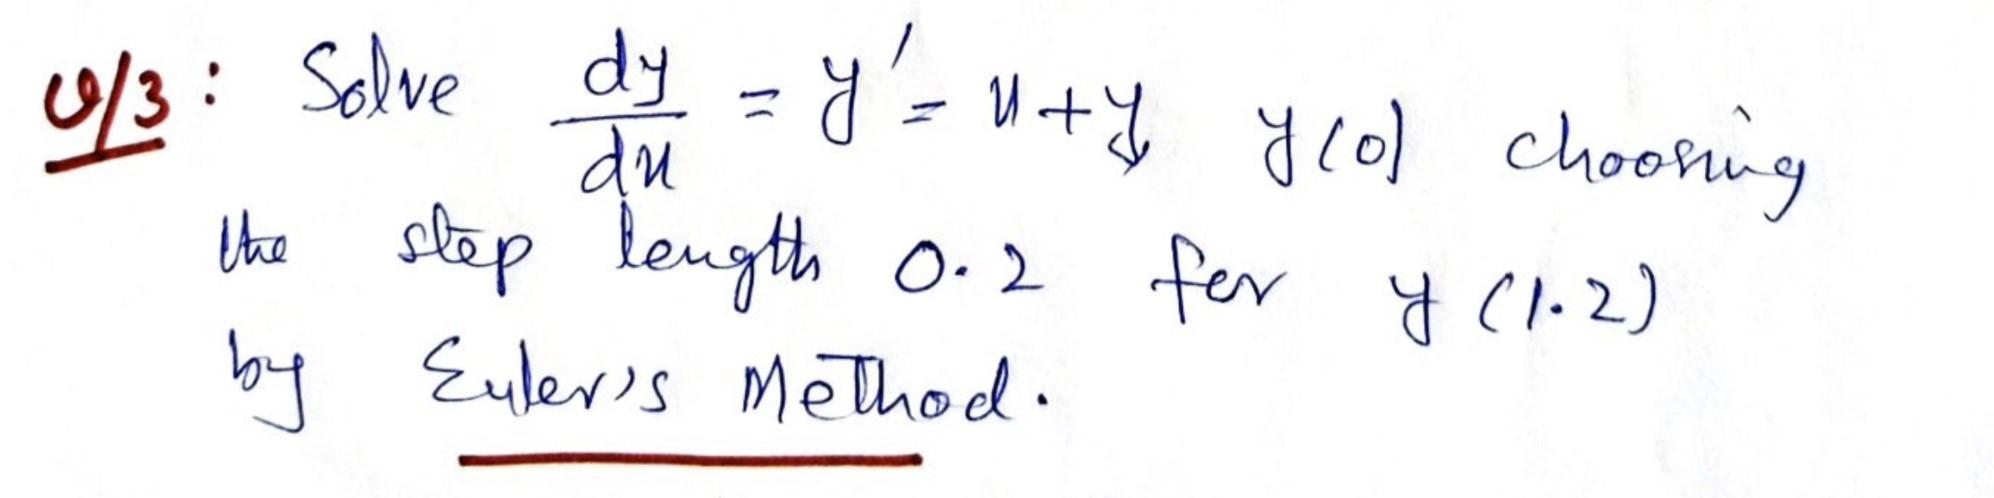 Q/3: Solve dy/dx = y' = x+y, y(0) choosing
the step length 0.2 for y(1.2)
by Euler's Method.